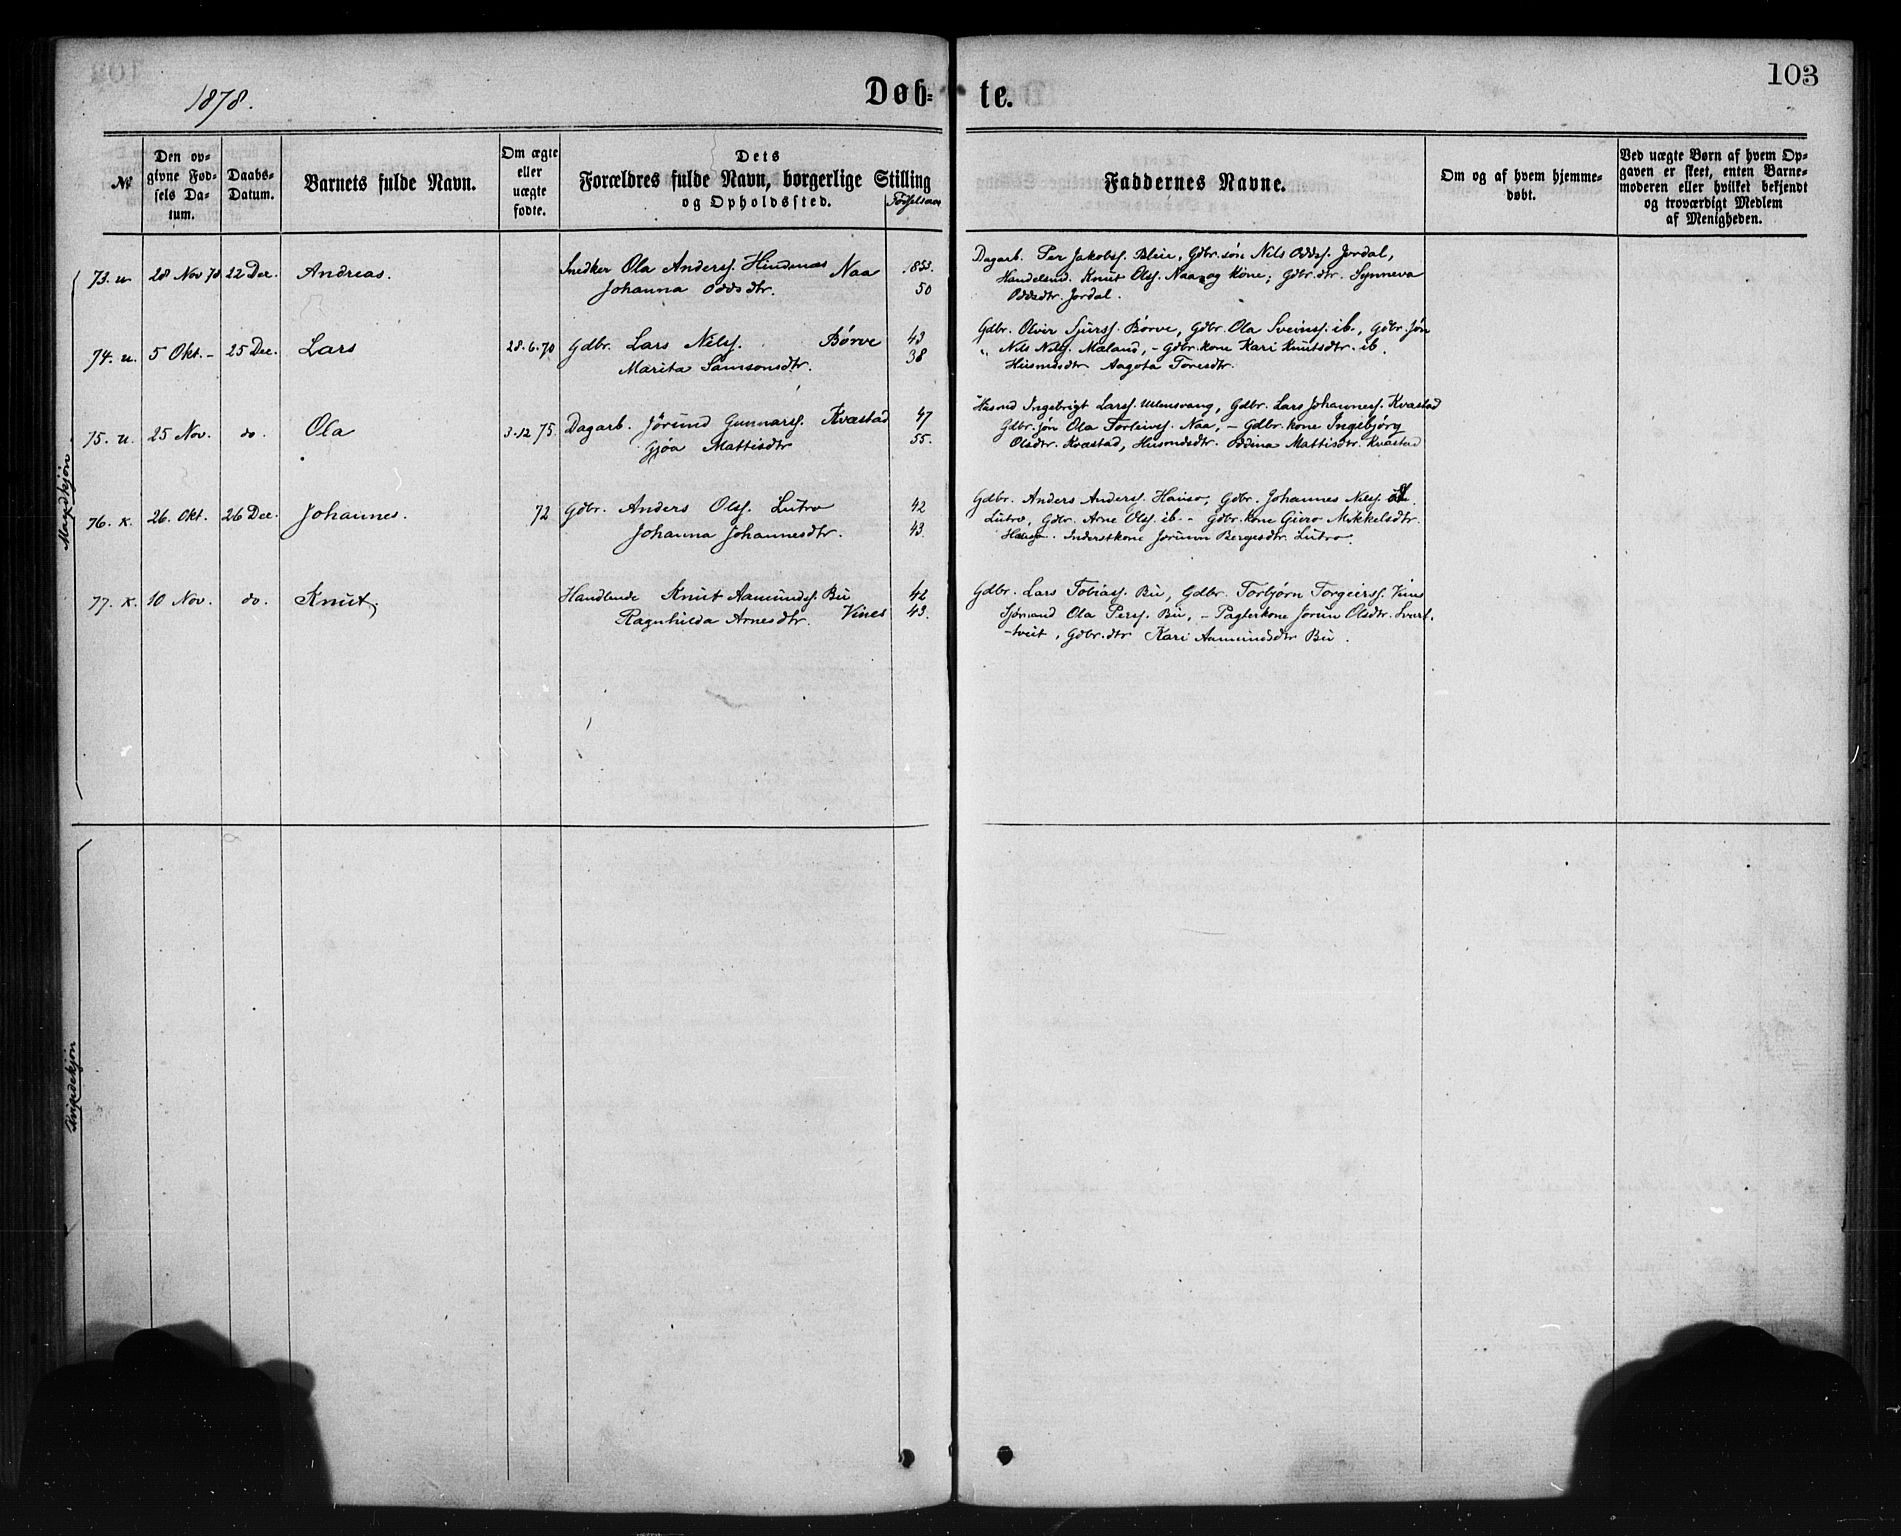 1878.
Døb- te.
103
№
Den op-
givne Fød-
sels Da-
tum.
Daabs-
Datum.
Barnets fulde Navn.
Om ægte
eller
uægte
fødte.
Dets
Forældres fulde Navn, borgerlige Stilling
og Opholdssted.
Fødselsaar
Faddernes Navne.
Om og af hvem hjemme-
døbt.
Ved uægte Børn af hvem Op-
gaven er skeet, enten Barne-
moderen eller hvilket bekjendt
og troværdigt Medlem
af Menigheden.
Mandkjön
73. u. 28 Nov 78 22 Dec. Andreas. Snedker Ola Anderss. Hindenæs Naa 1853.
Johanna Oddsdtr. 50
Dagarb. Per Jakobss. Bleie, Gdbr. sön Nils Oddss. Jordal,
Handelsmd. Knut Olss. Naa og kone; Gdbr. dtr. Synneva
Oddsdtr. Jordal.
74. u. 5 Okt. - 25 Dec. Lars 28-6-70 Gdbr. Lars Nilss. Börve 43
Marita Samsonsdtr. 38
Gdbr. Olvir Sjurss. Börve, Gdbr. Ola Sveinss. ib., Gdbr. sön
" Nils Nilss. Mæland, - Gdbr. kone Kari Knutsdtr. ib.
Husmdsdtr Aagota Toresdtr.
75. u. 25 Nov. do. Ola 3-12 75. Dagarb. Jörund Gunnarss. Kvæstad 47
Gjöa Mattisdtr 55.
Husmd Ingebrigt Larss. Ullensvang, Gdbr. Lars Johanness. Kvæstad
Gdbr. sön Ola Torleivs. Naa, - Gdbr. kone Ingebjörg
Olsdtr. Kvæstad, Husmdsdtr. Oddina Mattisdtr. Kvæstad
76. K. 26. Okt. 26 Dec. Johannes. 72 Gdbr. Anders Olss. Lutro 42
Johanna Johannesdtr. 43.
Gdbr. Anders Anderss. Hauso, Gdbr. Johannes Nilss.
Lutro, Gdbr. Arne Olss. ib. - Gdbr. kone Guro Mikkelsdtr.
Hauso. Inderstkone Jorunn Bergesdtr. Lutro.
77. K. 10 Nov. do. Knut. Handlende Knut Aamundss. Bu 42
Ragnhilda Arnesdtr. Vines 43.
Gdbr. Lars Tobiass. Bu, Gdbr. Torbjörn Torgeirss. Vines
Sjömand Ola Perss. Bu, - Pagterkone Jorun Olsdtr.
-tveit, Gdbr. dtr Kari Aamundsdtr Bu.
Kvindekjön